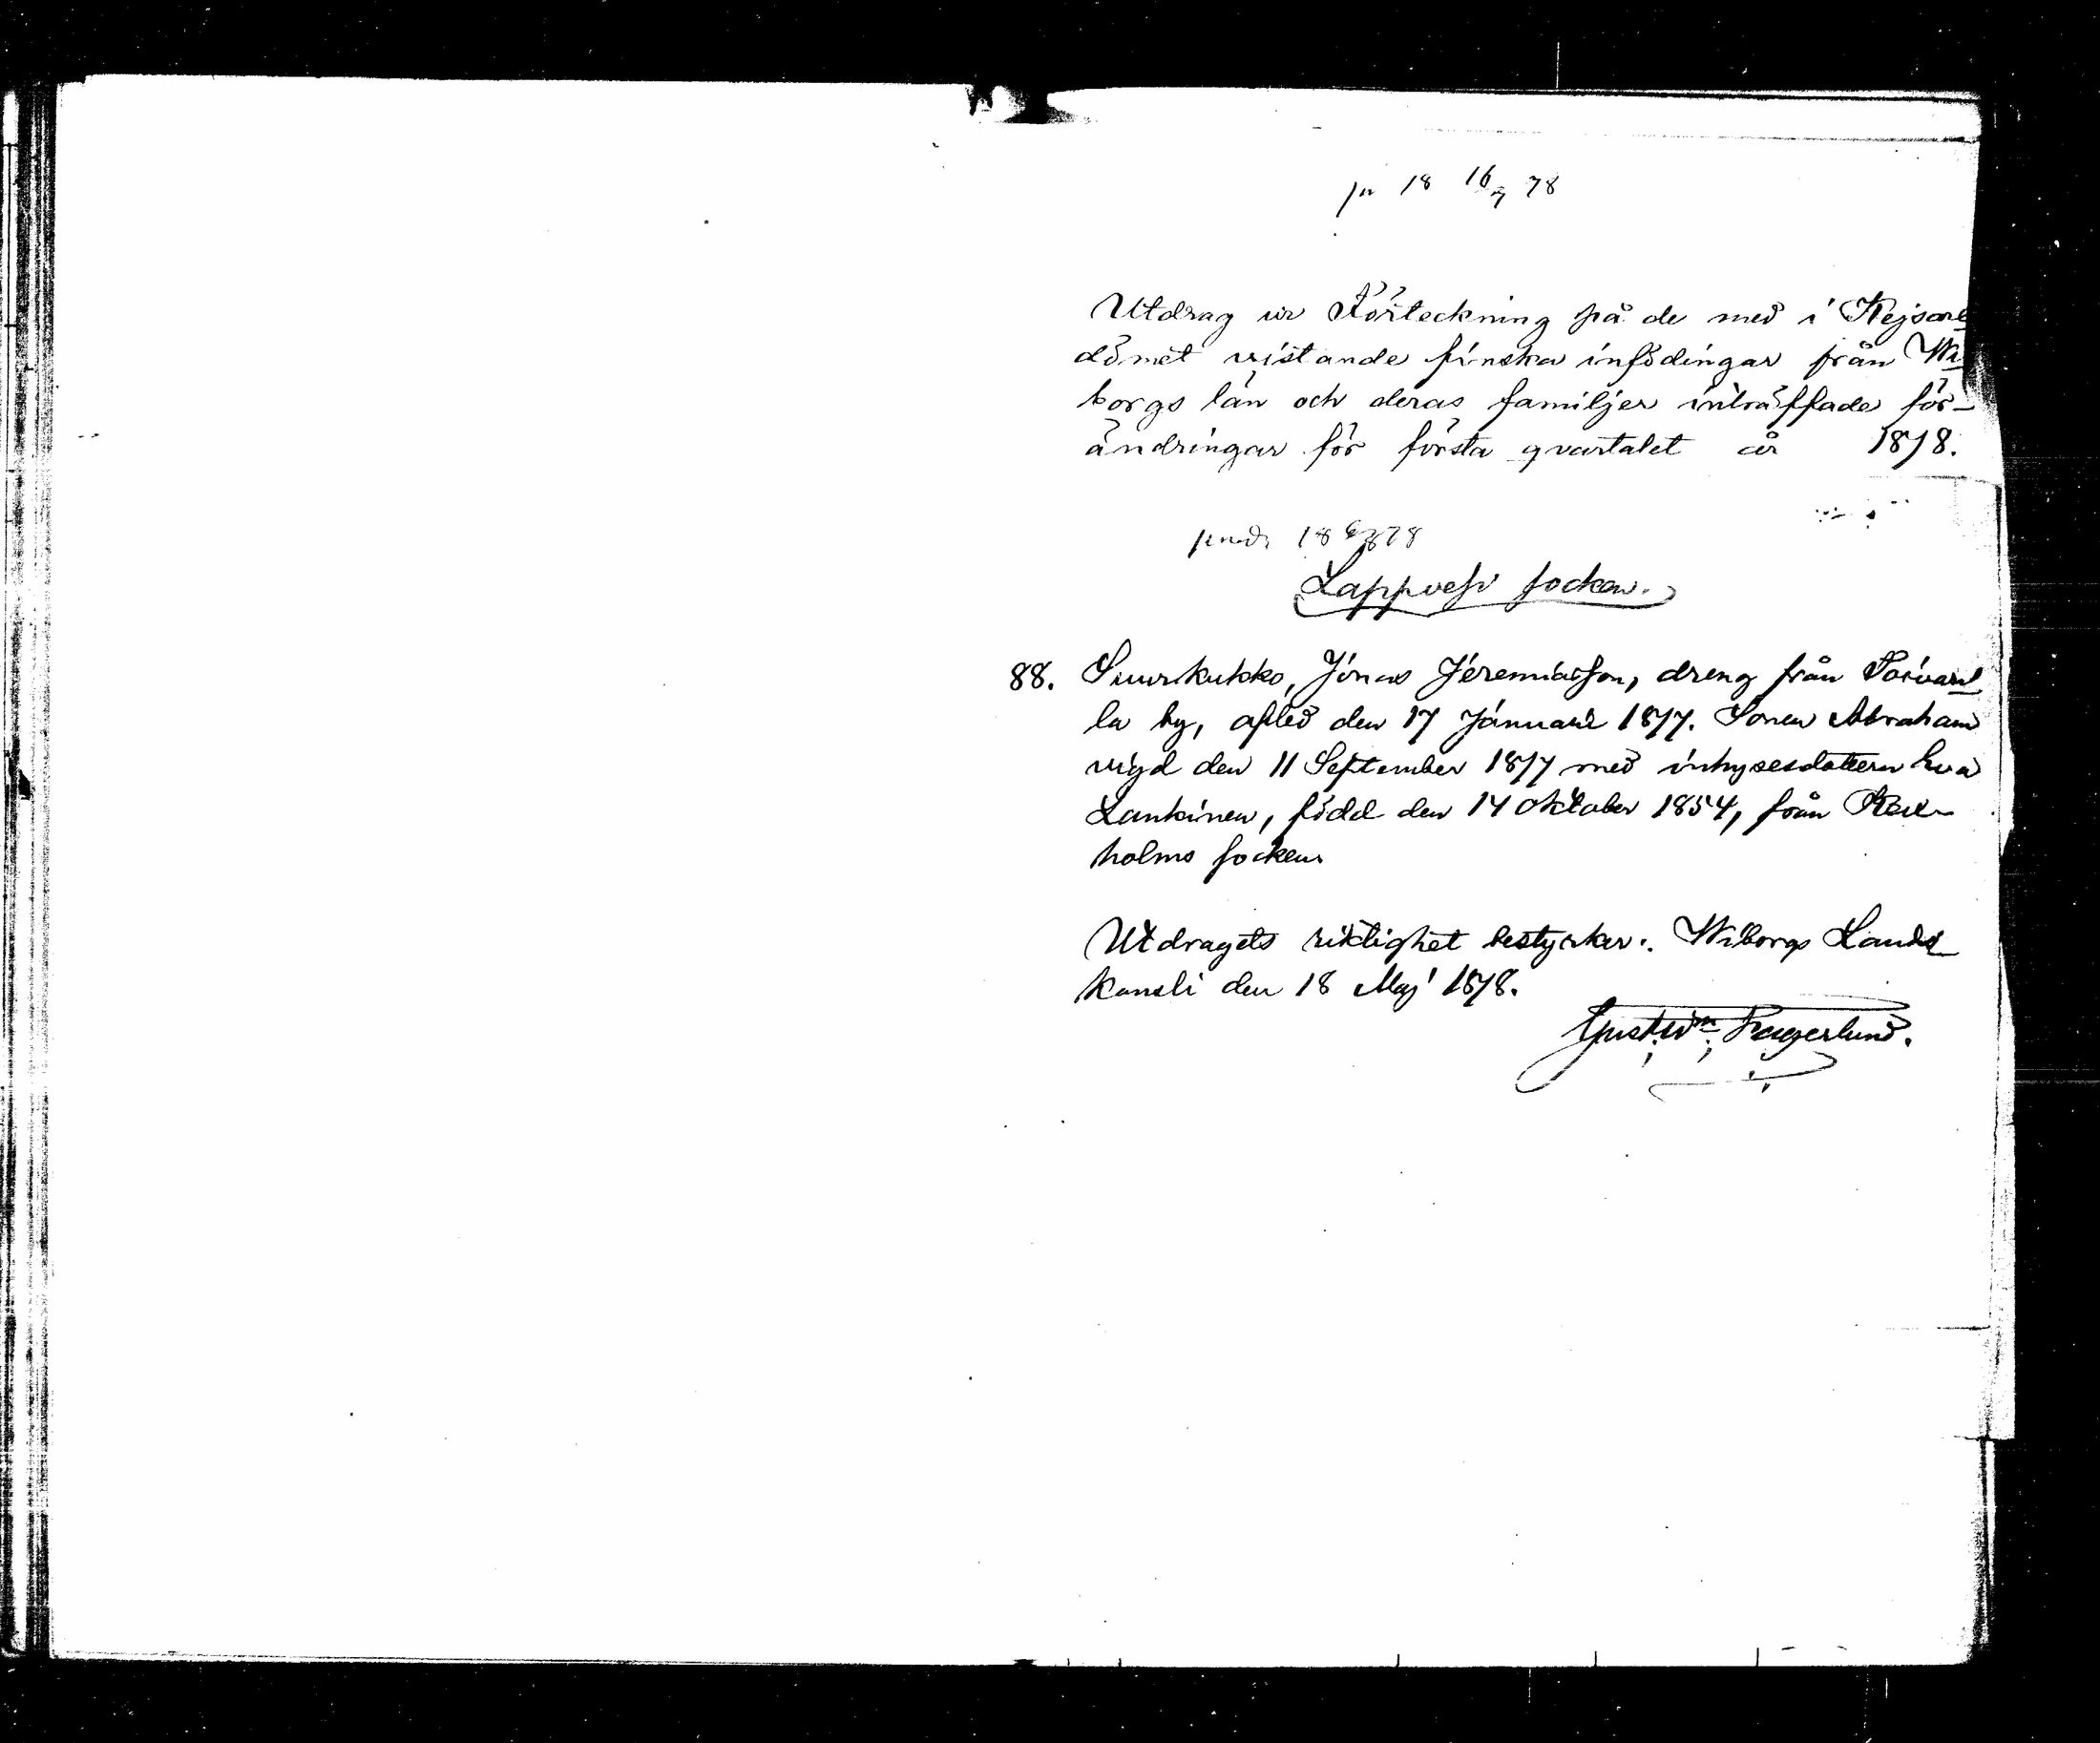 pr 18 16/7 78
Utdrag ur Förteckning på de med i Kejsare
dömet vistande finska infödingar från Wi
borgs län och deras familjer inträffade för-
ändringar för första qvartalet år 1878.
18 6/8 78
Lappvesi socken.
88. Suurkukko, Jonas Jeremiasson, dreng från
la by, afled den 17 Januari 1877. Sonen Abraham
vigd den 11 September 1877 med inhysesdottern Eva
Lankinen, född den 14 Oktober 1854, från Kex-
holms socken
Utdragets riktighet bestyrker: Wiborgs Lands
kansli den 18 Maj 1878.
Gust. Wm Fagerlund.